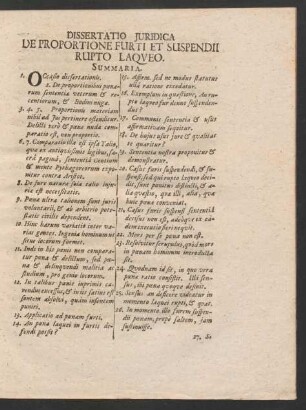 DISSERTATIO JURIDICA
DE PROPORTIONE FURTI ET SUSPENDII
RUPTO LAQVEO.
SUMMARIA.
1. OCcasio dissertationis.
2. De proportionibus pœnarum
sententia veterum & recentiorum,
& Bodini nugæ.
3. 4. 5. Proportionis materiam
nihil ad Jus pertinere ostenditur.
Delicti verò & pœnæ nulla comparatio
est, neq; proportio.
6. 7. Comparatio illa est ipsa Talio,
quæ ex antiquissimis legibus, sacrâ
paginâ, sententiâ Gentium
& monte Pythagoreorum expenditur
contra Aristot.
8. De jure naturæ suis ratio injuriis
est accersitatis.
9. Pœna ultra talionem sunt juris
voluntarii, & ab arbitrio potestatis
civilis dependent.
10. Hinc harum varietas inter varias
gentes. Ingenia hominum &
situs locorum formet.
11. Inde in his pœnis non comparatur
pœna & delictum, sed pœna
& delinquendi malitia ac studium,
pro genio locorum.
12. In talibus pœnis inprimis cavendus
excessus, & in iis satius est
sontem absolvi, quàm insontem
puniri.
13. Applicatio ad pœnam furti.
14. An pœna laquei in furtis defendi
possit?
15. Affirm. sed ne modus statutus
ulla ratione excedatur.
16. Exemplum in quæstione, An rupto
laqueo fur denuo suspendendus?
17. Communis sententia & usus
affirmativam sequitur.
18. De hujus usus jure & qualitate
quæritur?
19. Sententia nostra proponitur &
demonstratur.
20. Casus furis suspendendi, & suspensi,
sed quoque laqueo decidentis,
sunt penitus distincti, & alia
quæstio, quæ illi, alia, quæ
huic pœna conveniat.
21. Casus furis suspensi sententiâ
decisus non est, adeoq; ex eadem
executio fieri nequit.
22. Mors per se pœna non est.
23. Resolvitur scrupulus, quid mors
in pœnam hominum introducta
sit.
24. Quodnam id sit, in quo vera
pœnæ ratio consistit. Ubi sensus,
ibi pœna quoque definit.
25. Sensus an desinere videatur in
momento laquei rupti, & quat.
26. In momento illo furem suspendii
pœnam, propè saltem, jam
sustinuisse.
27. Se